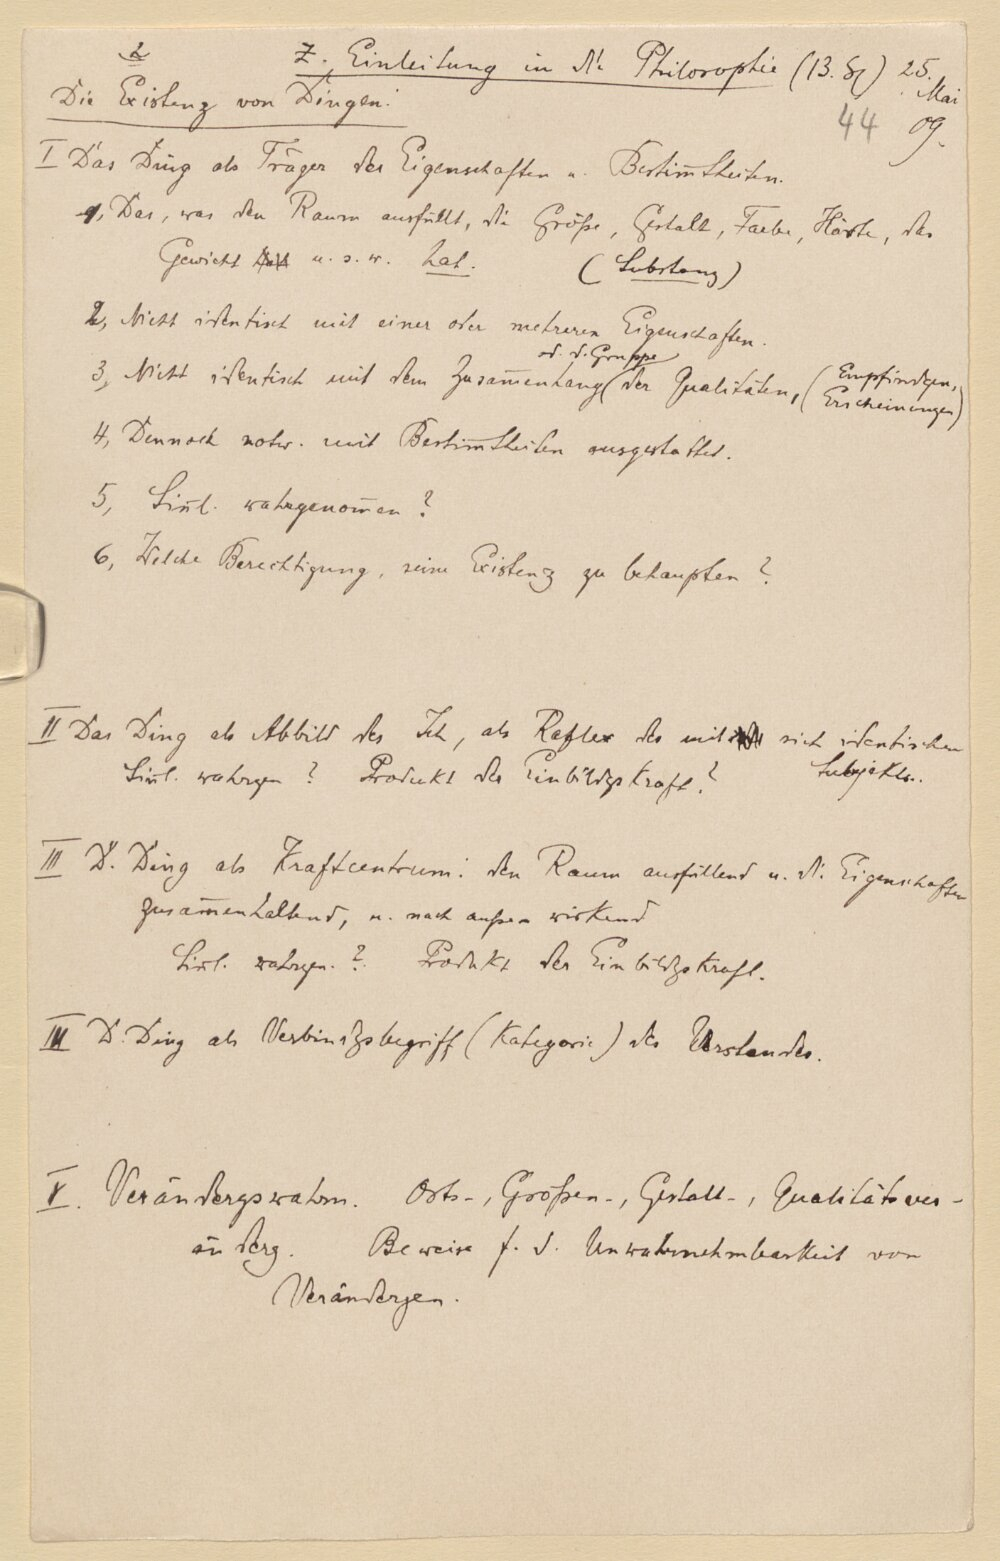 2
Z. Einleitung in die Philosophie (13. ) 25. Mai 09.
44
Die Existenz von Dingen:
I Das Ding als Träger der Eigenschaften u. Bestim̄theiten.
1, Das, was den Raum ausfüllt, die Größe, Gestalt, Farbe, Härte, das
Gewicht u. s. w. hat. (Substanz)
2, Nicht identisch mit einer oder mehreren Eigenschaften.
od. d. Gruppe
3, Nicht identisch mit dem Zusam̄enhang (der Qualitäten, (Empfindgen, Erscheinungen)
4, Dennoch notw. mit Bestim̄theiten ausgestattet.
5, Sin̄l. wahrgenom̄en?
6, Welche Berechtigung, seine Existenz zu behaupten?
II Das Ding als Abbild des Ich, als Reflex des mit sich identischen
Sin̄l. wahrgen? Produkt der Einbildgskraft? Subjekts.
III D. Ding als Kraftcentrum: den Raum ausfüllend u. di. Eigenschaften
zusam̄enhaltend, u. nach außen wirkend
Sin̄l. wahrgen.? Produkt der Einbildgskraft.
IIII D. Ding als Verbindgsbegriff (Kategorie) des Verstandes.
V. Verändergswahrn. Orts-, Größen-, Gestalt-, Qualitätsver-
änderg. Beweise f. d. Unwahrnehmbarkeit von
Verändergen.